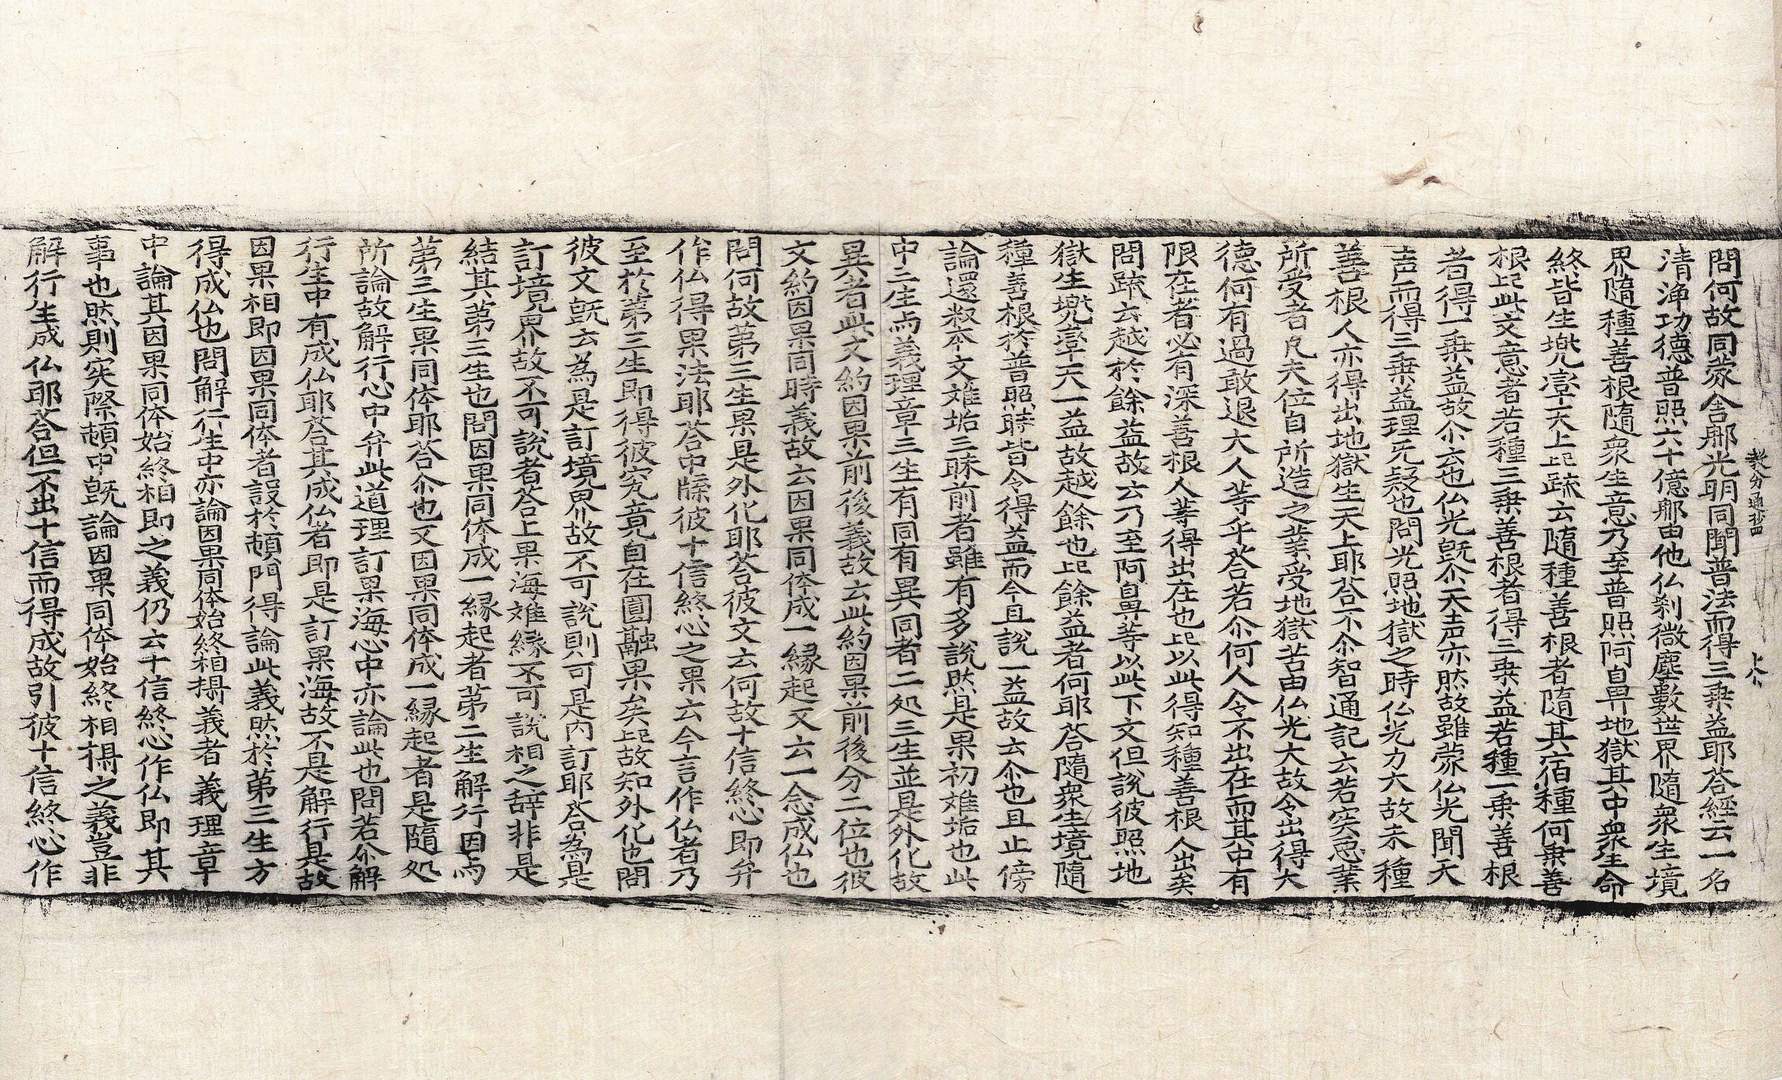 教分通抄四
十八
問何故同蒙舍那光明同聞普法而得三乗益耶答經云一名
清浄功德普照六十億那由他仏刹微塵數世界隨衆生境
界隨種善根隨衆生意乃至普照阿鼻地獄其中衆生命
終皆生兜率天上疏云隨種善根者隨其宿種何乗善
根此文意者若種三乗善根者得三乗益若種一乗善根
者得一乗益故尒六也仏光旣尒天声亦然故雖蒙仏光聞天
声而得三乗益理无疑也問光照地獄之時仏光力大故未種
善根人亦得出地獄生天上耶答不尒智通記云若实惡業
所受者凡夫位自所造之業受地獄苦由仏光大故令出得大
德何有過敢退大人等乎答若尒何人令不出在而其中有
限在者必有深善根人等得出在也以此得知種善根人出矣
問疏云越於餘益故云乃至阿鼻等以此下文但說彼照地
獄生兜率天一益故越餘也餘益者何耶答隨衆生境隨
種善根於普照時皆令得益而今且說一益故云尒也且止傍
論還叙本文雖垢三昧前者雖有多說然是果初雖垢也此
中三生与義理章三生有同有異同者二処三生並是外化故
異者此文約因果前後義故云此約因果前後分二位也彼
文約因果同時義故云因果同体成一縁起又云一念成仏也
問何故第三生果是外化耶答彼文云何故十信終心即弁
作仏得果法耶答中牒彼十信終心之果云今言作仏者乃
至於第三生即得彼究竟自在圓融果矣故知外化也問
彼文旣云為是訂境界故不可說則可是内訂耶答為是
訂境界故不可說者答上果海雖縁不可說相之辞非是
結其第三生也問因果同体成一縁起者第二生解行因与
第三生果同体耶答尒也又因果同体成一縁起者是隨処
所論故解行心中弁此道理訂果海心中亦論此也問若尒解
行生中有成仏耶答其成仏者即是訂果海故不是解行是故
因果相即因果同体者設於頓門得論此義然於第三生方
得成仏也問解行生中亦論因果同体始終相揚義者義理章
中論其因果同体始終相即之義仍云十信終心作仏即其
事也然則实際頓中旣論因果同体始終相揚之義豈非
解行生成仏耶答但不出十信而得成故引彼十信終心作